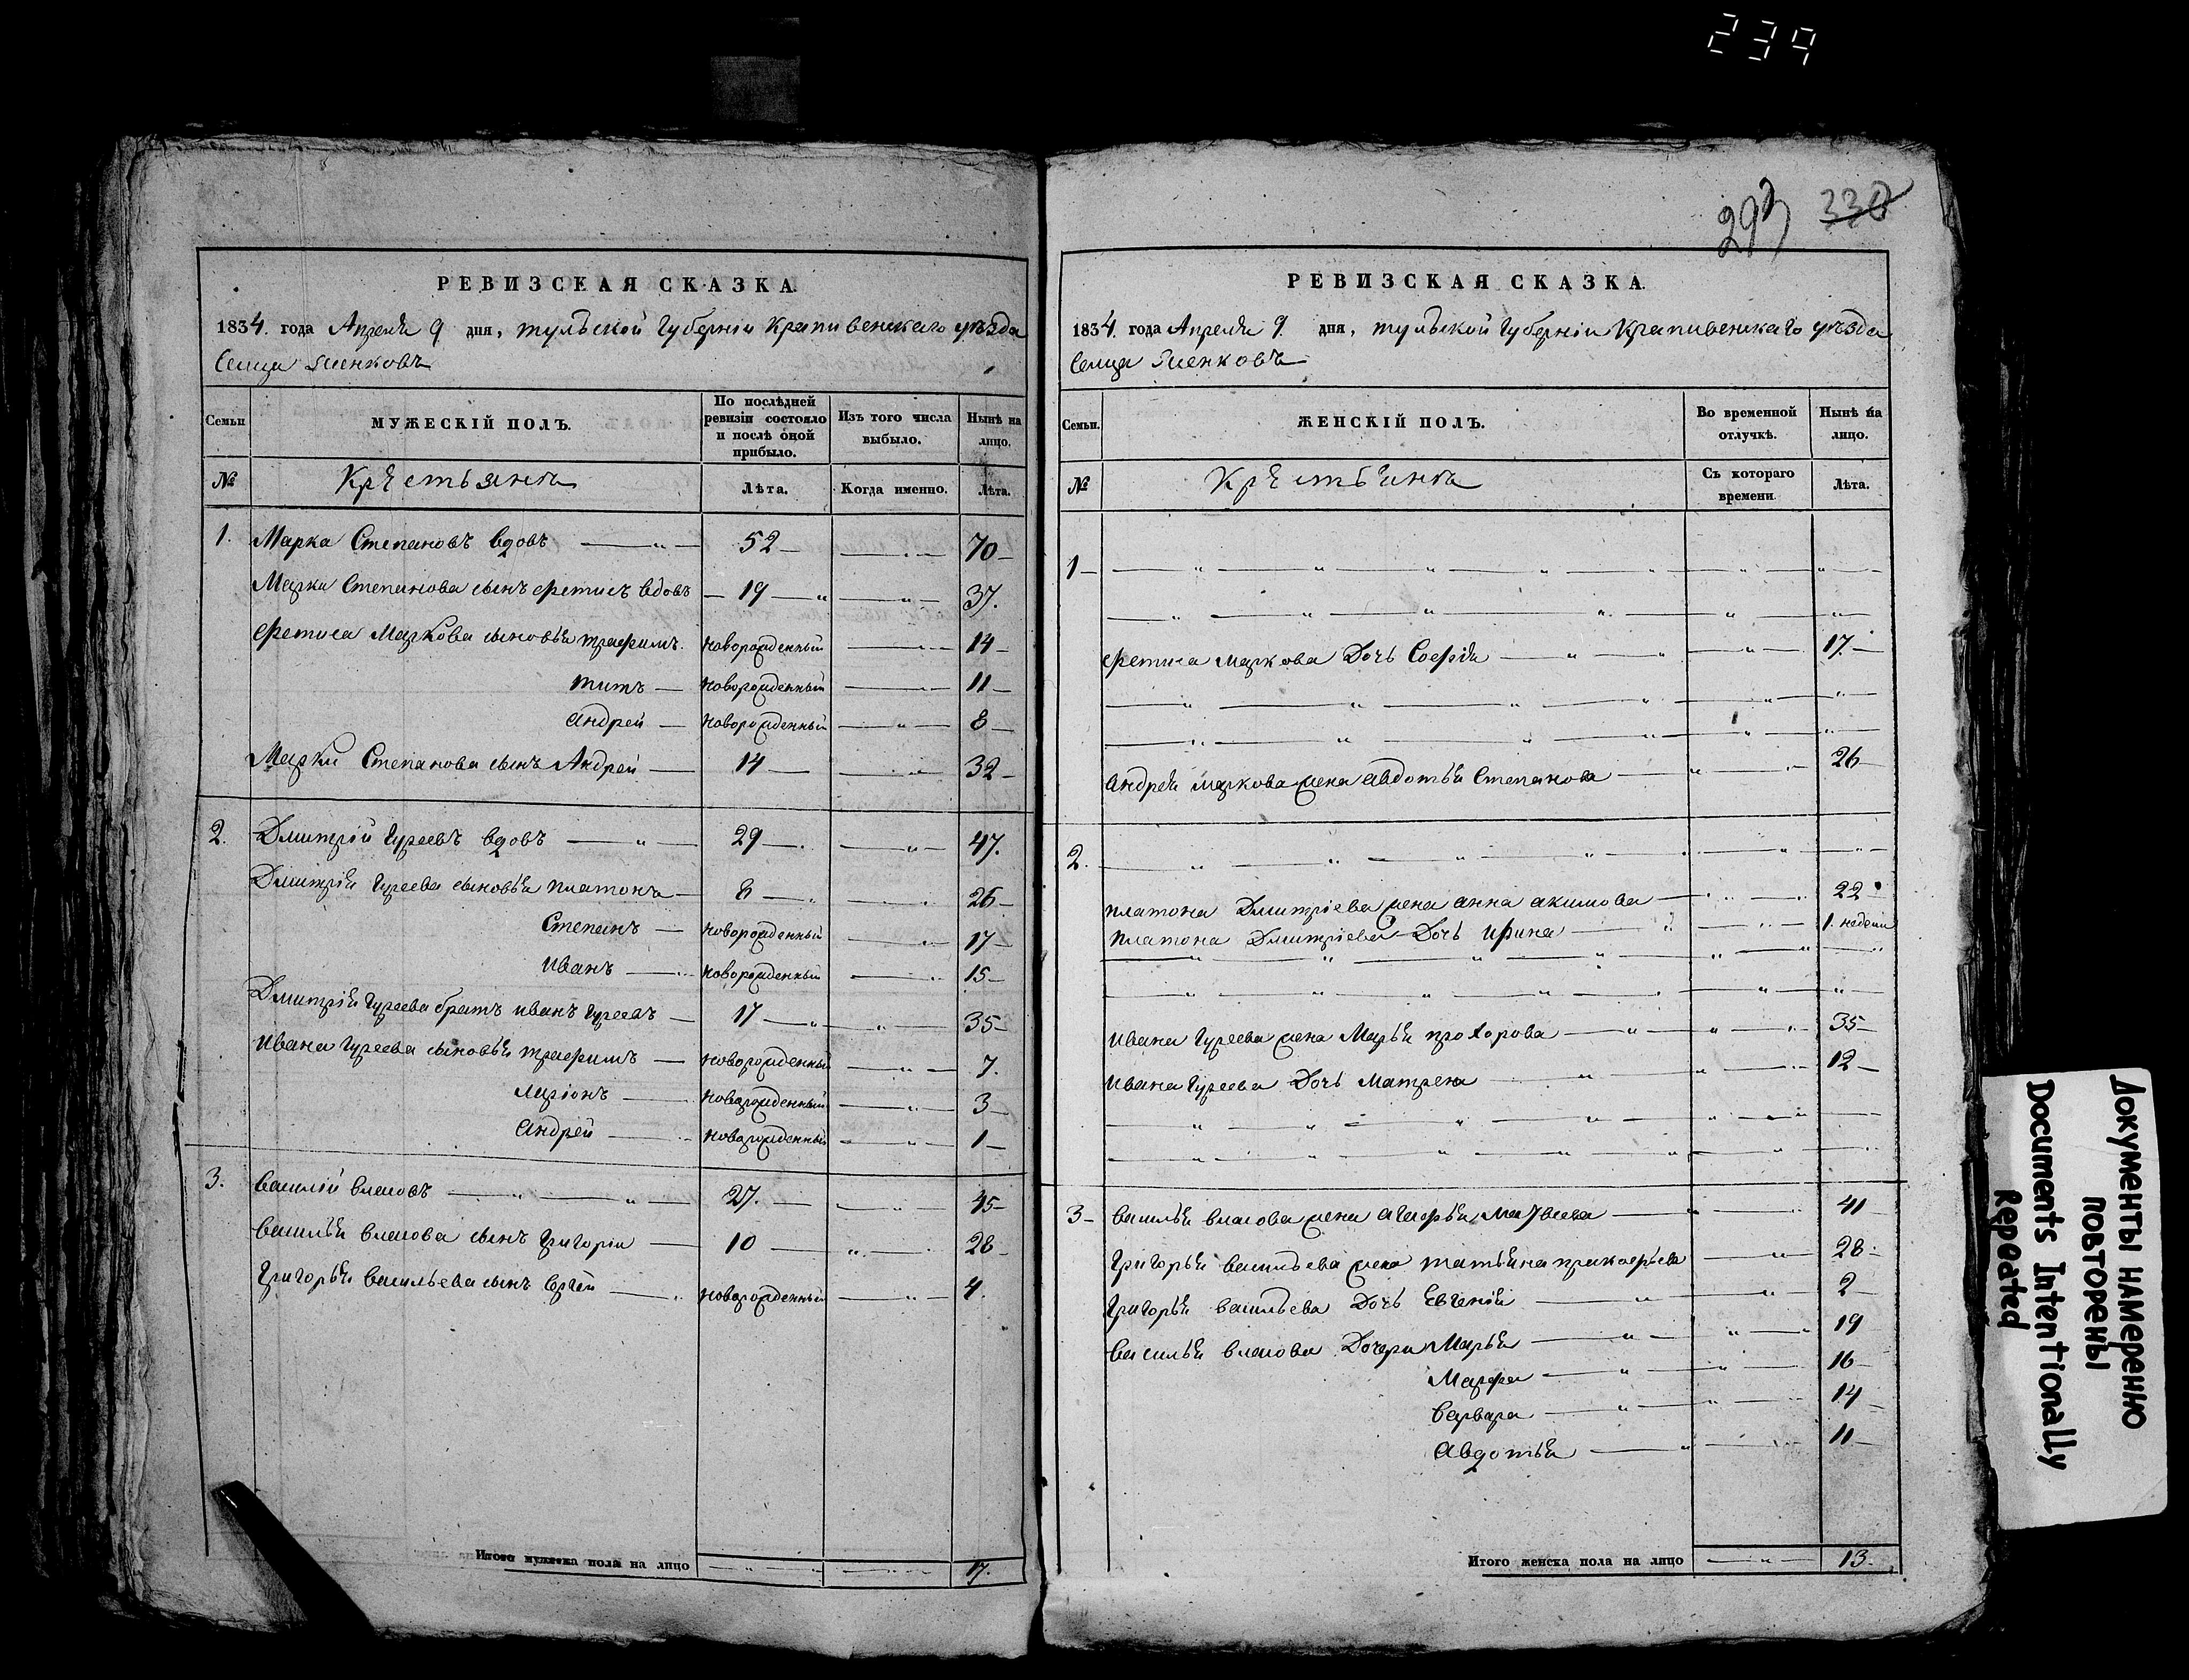 239
293 330
РЕВИЗСКАЯ СКАЗКА.
1834. года Апреля 9 дня, тульской Губерніи Крапивенскаго уѣзда
Селца Ясенковъ
Семьи
МУЖЕСКІЙ ПОЛЪ.
По послѣдней ревизіи состояло и послѣ оной прибыло.
Изъ того числа выбыло.
Нынѣ на лицо.
№ Крѣстьянѣ Лѣта. Когда именно. Лѣта.
1. Марка Степановъ вдовъ 52 70
Марки Степанова сынъ фетисъ вдовъ 19 37.
фетиса Маркова сыновья трафимъ новорожденный 14
титъ новорожденный 11
андрей новорожденный 8
Марки Степанова сынъ Андрей 14 32
2. Дмитрій Гуреевъ вдовъ 29 47.
Дмитрія Гуреева сыновья платонъ 8 26
Степанъ новорожденный 17
Иванъ новорожденный 15
Дмитрія Гуреева братъ иванъ Гуреевъ 17 35
Ивана Гуреева сыновья трафимъ новорожденный 7.
ларіонъ новорожденный 3
Андрей новорожденный 1
3. Василій власовъ 27. 45
Василья власова сынъ Григорій 10 28
Григорья васильева сынъ сергей новорожденный 4.
Итого мужеска пола на лицо 17.
РЕВИЗСКАЯ СКАЗКА.
1834. года Апреля 9. дня, тульской Губерніи Крапивенскаго уѣзда
Селца Ясенковъ
Семьи.
ЖЕНСКІЙ ПОЛЪ.
Во временной отлучкѣ.
Нынѣ на лицо.
№ Крѣстьянѣ Съ котораго времени. Лѣта.
1
фетиса маркова Дочь Софья 17.
андрея маркова жена авдотья Степанова 26
2.
платона Дмитріева жена анна акимова 22
платона Дмитріева Дочь Ирина 1. недели
ивана Гуреева жена Марья прохорова 35
ивана Гуреева Дочь Матрена 12
3 василья власова жена агафья матвеева 41
Григорья васильева жена татьяна пракофьева 28
Григорья васильева Дочь Евгенія 2
василья власова Дочери Марья 19
Марфа 16
варвара 14
Авдотья 11
Итого женска пола на лицо 13.
Документы намеренно
повторены
Documents Intentionally
Repeated